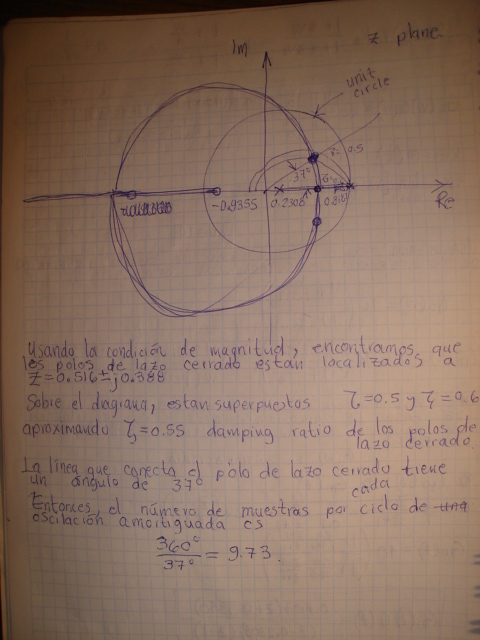 Im
z plane
unit circle
r= 0.5
37°
-0.9355
0.2308
Re
Usando la condición de magnitud, encontramos que
los polos de lazo cerrado están localizados a
z=0.516±j0.388
Sobre el diagrama, estan superpuestos ζ=0.5 y ζ=0.6
aproximando ζ=0.55 damping ratio de los polos de
lazo cerrado.
La línea que conecta el polo de lazo cerrado tiene
un ángulo de 37°
cada
Entonces, el número de muestras por ciclo de
oscilación amortiguada es
360°
37° = 9.73.